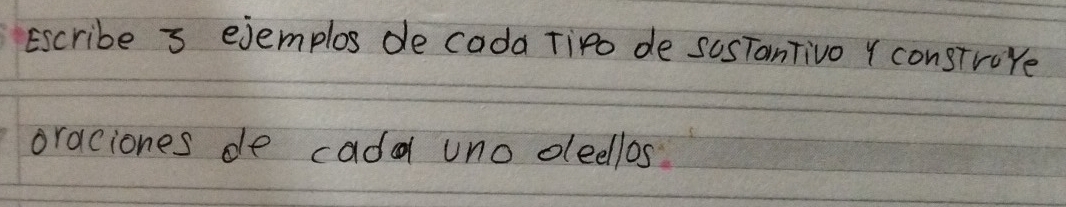 Escribe 3 ejemplos de cada Tipo de sustanTivo y consTruye
oraciones de cada uno deellos.